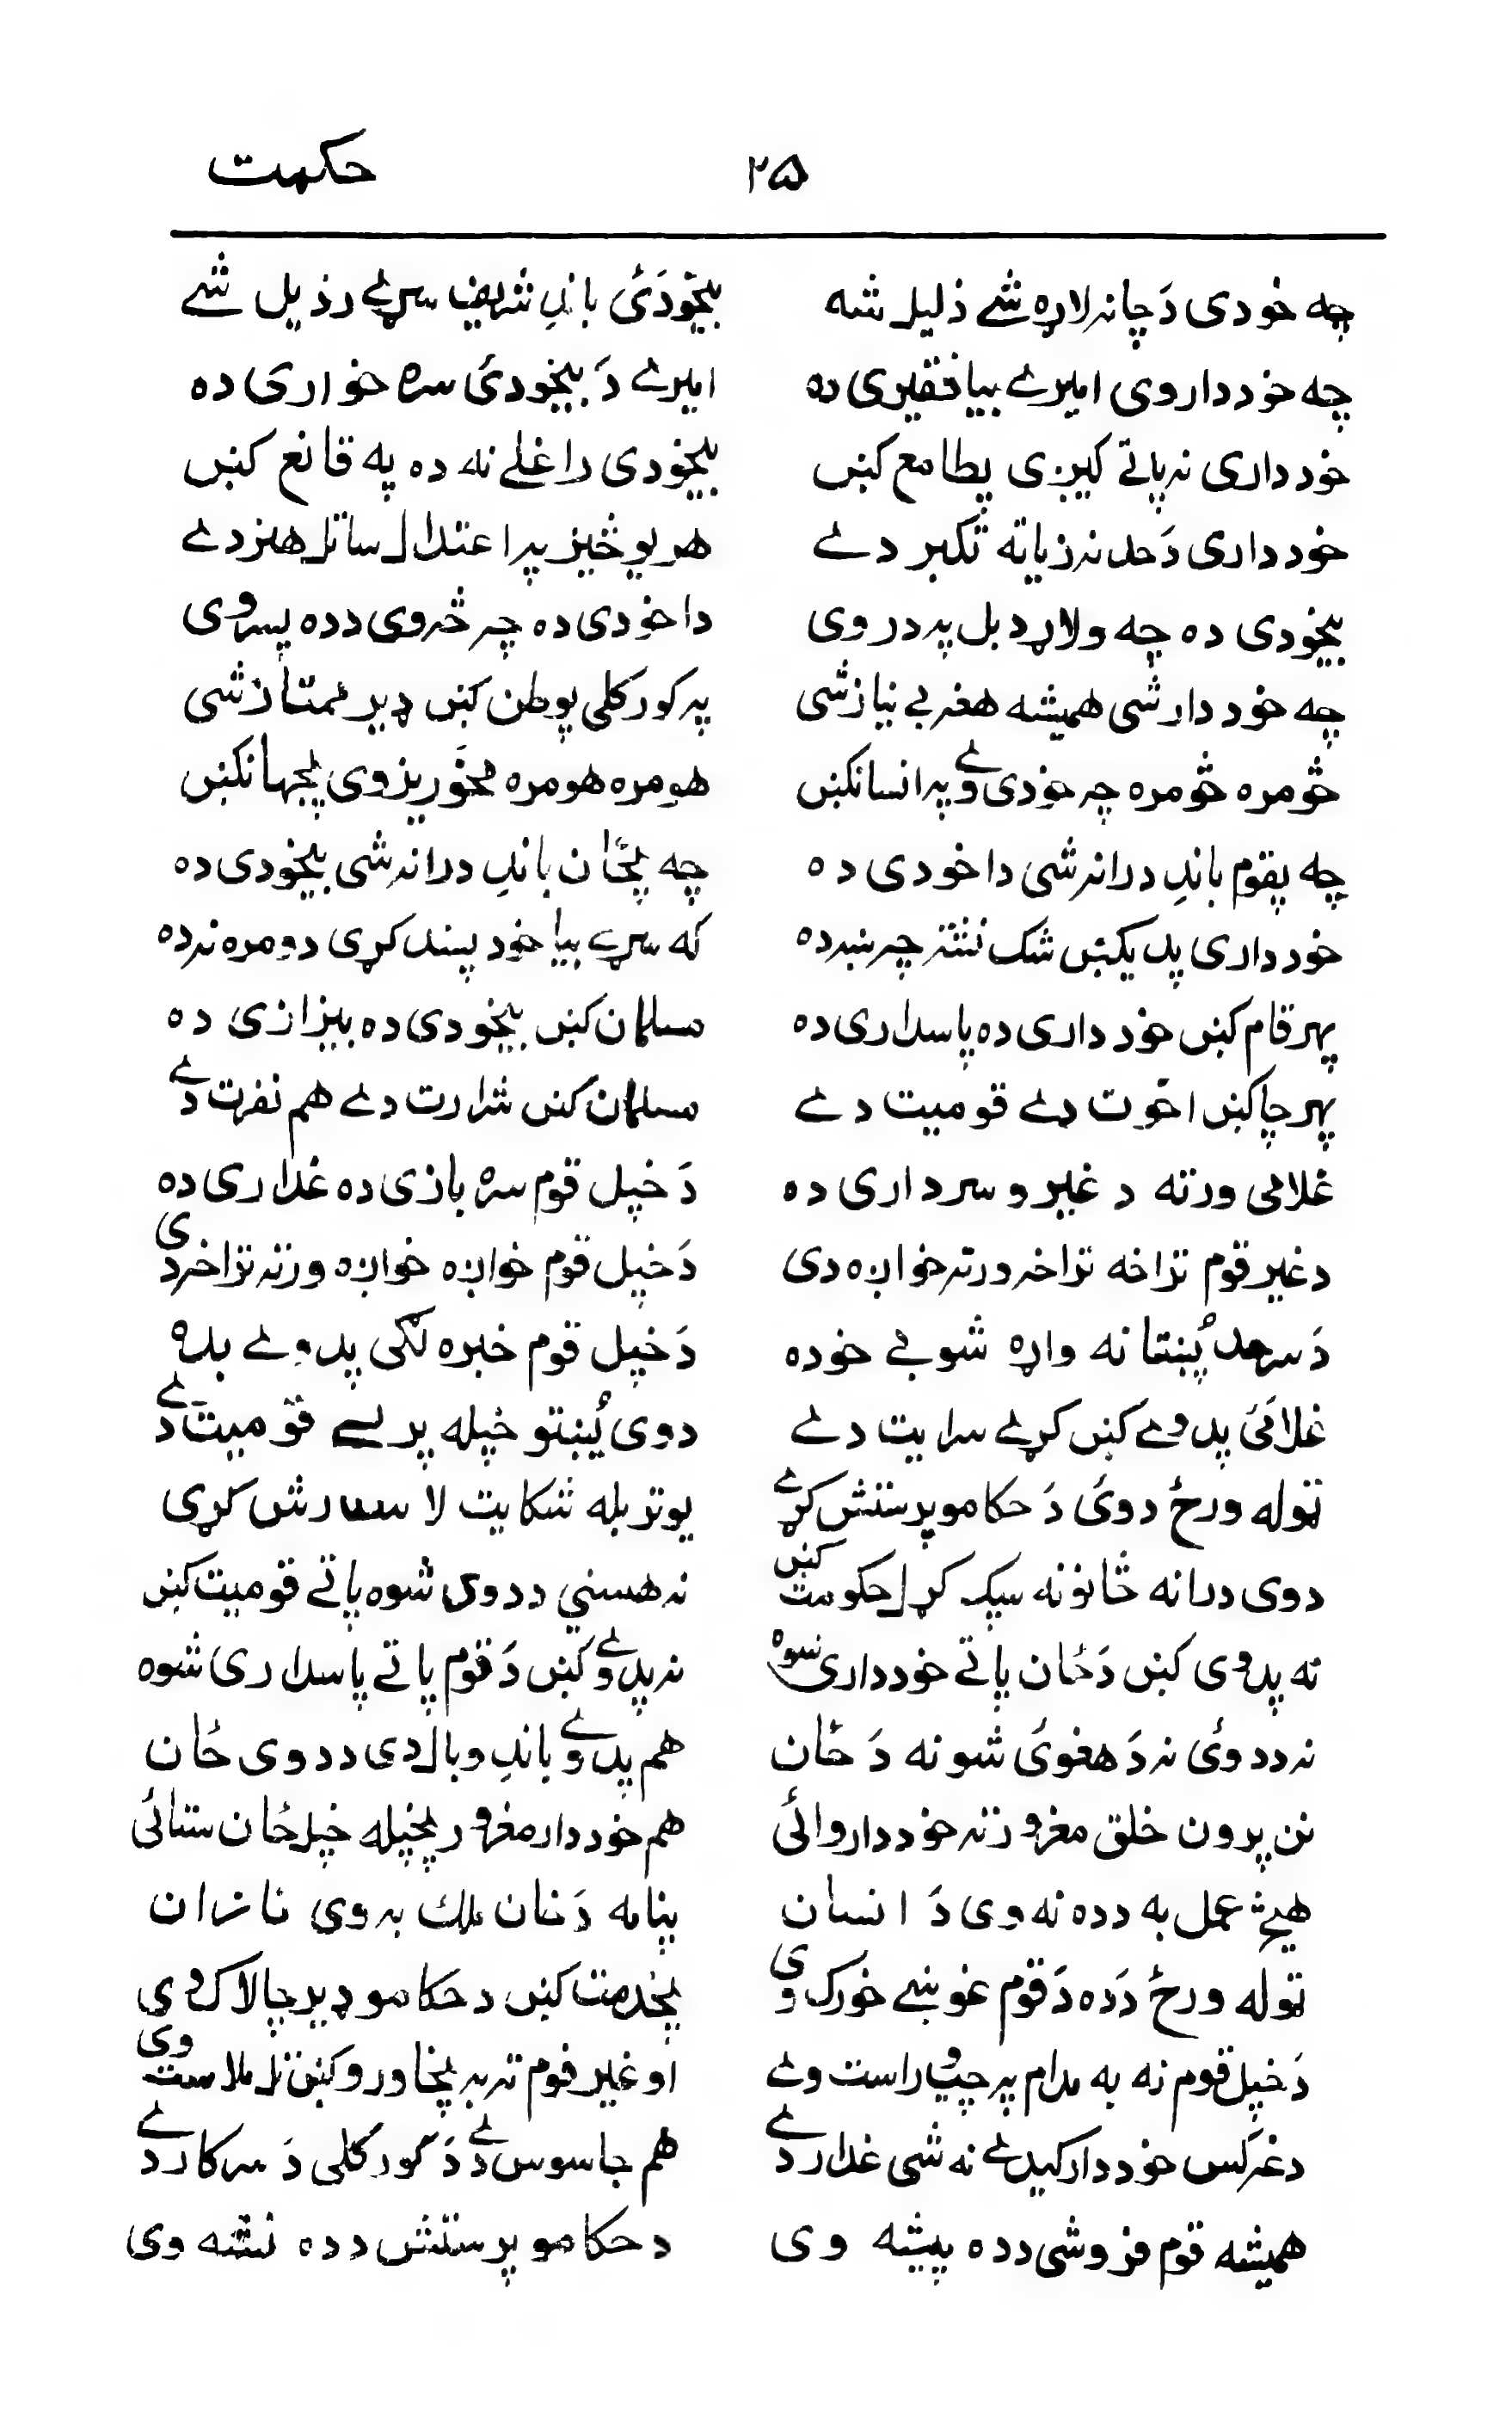 ۲۵ حکمت
چه خودی دَ چا نه لاړه شے ذلیل شه بیخودَئ باندِ شریف سړے رذیل شے
چه خوددار وی امیرے بیا فقیری ده امیرے دَ بیخودئ سره خواری ده
خودداری نه پاتے کیږی پطامع کښ بیخودی داغلے نه ده په قانع کښ
خودداری دَ حد نه زیاته تکبر دے هر یو څیز پر اعتدال ساتل هنر دے
بیخودی ده چه ولاړ د بل په در وی دا خودی ده چه څه وی دده په سر وی
چه خوددار شی همیشه هغه بے نیاز شی په کور کلی پوطن کښ ډیر ممتاز شی
څومره څومره چه خودی وے په انسانکښ هومره هومره مخوریز وی پجهانکښ
چه پقوم باندِ درانه شی دا خودی ده چه پځان باندِ درانه شی بیخودی ده
خودداری پدیکښ شک نشته چه ښه ده که سړے بیا خود پسند کړی دومره نه ده
پهر قام کښ خودداری ده پاسداری ده مسلمان کښ بیخودی ده بیزاری ده
پهر چا کښ اخوت دے قومیت دے مسلمان کښ شرارت دے هم نفرت دے
غلامی ورته د غیرو سرداری ده دَ خپل قوم سره بازی ده غداری ده
د غیر قوم تراخه تراخه ورته خواږه دی دَ خپل قوم خواږه خواږه ورته تراخه دی
دَ سرحد پُښتانه واړه شو بے خوده دَ خپل قوم خبره لګی پدوے بده
غلامَی پدوے کښ کړے سرایت دے دوی پُښتو خپله پریښے قومیت دے
توله ورځ دوئ دَ حکامو پرستش کړے یو تر بله شکایت لا سفارش کړی
دوی درانه ځانونه سپک کړل حکومت کښ نه هستي ددوی شوه پاتے قومیت کښ
نه پدوی کښ دَ ځان پاتے خودداری شوه نه پدوے کښ دَ قوم پاتے پاسداری شوه
نه ددوئ نه دَ هغوئ شو نه دَ ځان هم پدوے باندِ وبال دی ددوی ځان
نن پرون خلق مغرور ته خوددار وائی هم خوددار مغرور پخپله خپل ځان ستائی
هیڅ عمل به دده نه وی دَ انسان پنامه دَ خان ملك به وی نازان
توله ورځ دَده دَ قوم غوښے خورک وی پخدمت کښ د حکامو ډیر چالاک وی
دَ خپل قوم نه به مدام په چپ و راست وے او غیر قوم ته به پخاورو کښ تل ملاست وی
دغه کس خوددار کیدے نه شی غدار دے هم جاسوس دے دَ کور کلی دَ سرکار دے
همیشه قوم فروشی دده پیشه وی د حکامو پرستش دده نشه وی